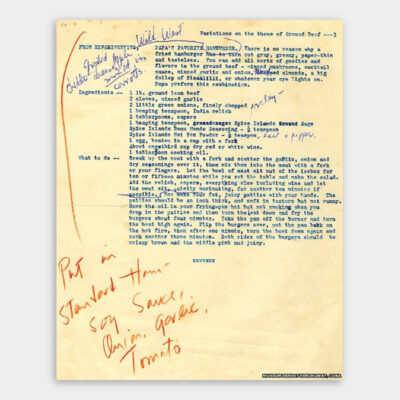 Variations on the theme of Ground Beef --3
Wild West
FROM EXPERIMENTING, PAPA'S FAVORITE HAMBURGER. There is no reason why a
fried hamburger has to turn out gray, greasy, paper-thin
and tasteless. You can add all sorts of goodies and
flavors to the ground beef -- minced mushrooms, cocktail
sauce, minced garlic and onion, chopped almonds, a big
dollop of Piccadilli, or whatever your eye lights on.
Papa prefers this combination.
Ingredients -- 1 lb. ground lean beef
2 cloves, minced garlic
2 little green onions, finely chopped parsley
1 heaping teaspoon, India relish
2 tablespoons, capers
1 heaping teaspoon, Spice Islands Sage
Spice Islands Beau Monde Seasoning -- ½ teaspoon
Spice Islands Mei Yen Powder -- ½ teaspoon, salt & pepper.
1 egg, beaten in a cup with a fork
About one-third cup dry red or white wine.
1 tablespoon cooking oil.
What to do -- Break up the meat with a fork and scatter the garlic, onion and
dry seasonings over it, then mix them into the meat with a fork
or your fingers. Let the bowl of meat sit out of the icebox for
ten or fifteen minutes while you set the table and make the salad.
Add the relish, capers, everything else including wine and let
the meat sit, quietly marinating, for another ten minutes if
possible. Now make four fat, juicy patties with your hands. The
patties should be an inch thick, and soft in texture but not runny.
Have the oil in your frying-pan hot but not smoking when you
drop in the patties and then turn the heat down and fry the
burgers about four minutes. Take the pan off the burner and turn
the heat high again. Flip the burgers over, put the pan back on
the hot fire, then after one minute, turn the heat down again and
cook another three minutes. Both sides of the burgers should be
crispy brown and the middle pink and juicy.
Put in
Standard Ham-
Soy Sauce,
Onion, Garlic,
Tomato